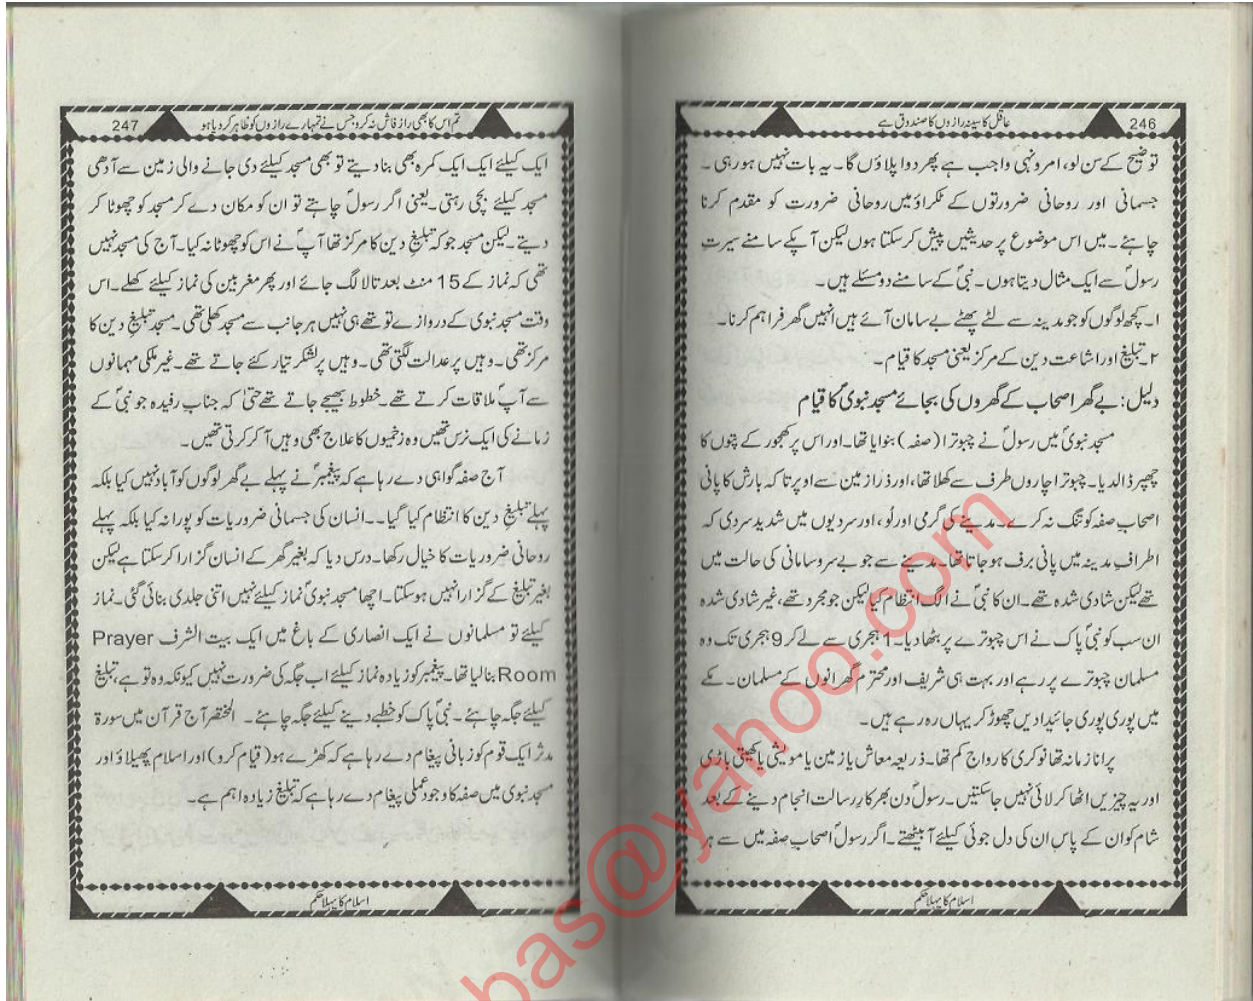 246
عاقل کا سینہ رازوں کا صندوق ہے
توضیح کے سن لو، امر و نہی واجب ہے پھر دوا پلاؤں گا۔ یہ بات نہیں ہو رہی۔
جسمانی اور روحانی ضرورتوں کے ٹکراؤ میں روحانی ضرورت کو مقدم کرنا
چاہئے۔ میں اس موضوع پر حدیثیں پیش کر سکتا ہوں لیکن آپکے سامنے سیرتِ
رسولؐ سے ایک مثال دیتا ہوں۔ نبیؐ کے سامنے دو مسئلے ہیں۔
۱۔ کچھ لوگوں کو جو مدینہ سے لٹے پھٹے بے سامان آئے ہیں انہیں گھر فراہم کرنا۔
۲۔ تبلیغ اور اشاعت دین کے مرکز یعنی مسجد کا قیام۔
دلیل: بے گھر اصحاب کے گھروں کی بجائے مسجد نبویؐ کا قیام
مسجد نبویؐ میں رسولؐ نے چبوترا (صفہ) بنوایا تھا۔ اور اس پر کھجور کے پتوں کا
چھپر ڈالدیا۔ چبوترا چاروں طرف سے کھلا تھا، اور ذرا زمین سے اوپر تا کہ بارش کا پانی
اصحابِ صفہ کو تنگ نہ کرے۔ مدینے کی گرمی اور لُو، اور سردیوں میں شدید سردی کہ
اطرافِ مدینہ میں پانی برف ہو جاتا تھا۔ مدینے سے جو بے سروسامانی کی حالت میں
تھے لیکن شادی شدہ تھے۔ ان کا نبیؐ نے الگ انتظام کیا لیکن جو مجرد تھے، غیر شادی شدہ
ان سب کو نبی پاکؐ نے اس چبوترے پر بٹھا دیا۔ 1 ہجری سے لے کر 9 ہجری تک وہ
مسلمان چبوترے پر رہے اور بہت ہی شریف اور محترم گھرانوں کے مسلمان۔ مکے
میں پوری پوری جائیدادیں چھوڑ کر یہاں رہ رہے ہیں۔
پرانا زمانہ تھا نوکری کا رواج کم تھا۔ ذریعہ معاش یا زمین یا مویشی یا کھیتی باڑی
اور یہ چیزیں اٹھا کر لائی نہیں جا سکتیں۔ رسولؐ دن بھر کارِ رسالت انجام دینے کے بعد
شام کو ان کے پاس ان کی دل جوئی کیلئے آ بیٹھتے۔ اگر رسولؐ اصحابِ صفہ میں سے ہر
اسلام کا پہلا حکم
247
تم اس کا بھی راز فاش نہ کرو جس نے تمہارے رازوں کو ظاہر کر دیا ہو
ایک کیلئے ایک ایک کمرہ بھی بنا دیتے تو بھی مسجد کیلئے دی جانے والی زمین سے آدھی
مسجد کیلئے بچی رہتی۔ یعنی اگر رسولؐ چاہتے تو ان کو مکان دے کر مسجد کو چھوٹا کر
دیتے۔ لیکن مسجد جو کہ تبلیغِ دین کا مرکز تھا آپؐ نے اس کو چھوٹا نہ کیا۔ آج کی مسجد نہیں
تھی کہ نماز کے 15 منٹ بعد تالا لگ جائے اور پھر مغربین کی نماز کیلئے کھلے۔ اس
وقت مسجد نبوی کے دروازے تو تھے ہی نہیں ہر جانب سے مسجد کھلی تھی۔ مسجد تبلیغِ دین کا
مرکز تھی۔ وہیں پر عدالت لگتی تھی۔ وہیں پر لشکر تیار کئے جاتے تھے۔ غیر ملکی مہمانوں
سے آپؐ ملاقات کرتے تھے۔ خطوط بھیجے جاتے تھے حتیٰ کہ جناب رفیدہ جو نبیؐ کے
زمانے کی ایک نرس تھیں وہ زخمیوں کا علاج بھی وہیں آ کر کرتی تھیں۔
آج صفہ گواہی دے رہا ہے کہ پیغمبرؐ نے پہلے بے گھر لوگوں کو آباد نہیں کیا بلکہ
پہلے تبلیغِ دین کا انتظام کیا گیا۔۔ انسان کی جسمانی ضروریات کو پورا نہ کیا بلکہ پہلے
روحانی ضروریات کا خیال رکھا۔ درس دیا کہ بغیر گھر کے انسان گزارا کر سکتا ہے لیکن
بغیر تبلیغ کے گزارا نہیں ہو سکتا۔ اچھا مسجد نبویؐ نماز کیلئے نہیں اتنی جلدی بنائی گئی۔ نماز
کیلئے تو مسلمانوں نے ایک انصاری کے باغ میں ایک بیت الشرف Prayer
Room بنا لیا تھا۔ پیغمبرؐ کو زیادہ نماز کیلئے اب جگہ کی ضرورت نہیں کیونکہ وہ تو ہے، تبلیغ
کیلئے جگہ چاہئے۔ نبی پاکؐ کو خطبے دینے کیلئے جگہ چاہئے۔ المختصر آج قرآن میں سورۃ
مدثر ایک قوم کو زبانی پیغام دے رہا ہے کہ کھڑے ہو (قیام کرو) اور اسلام پھیلاؤ اور
مسجد نبوی میں صفہ کا وجود عملی پیغام دے رہا ہے کہ تبلیغ زیادہ اہم ہے۔
اسلام کا پہلا حکم
bas@yahoo.com